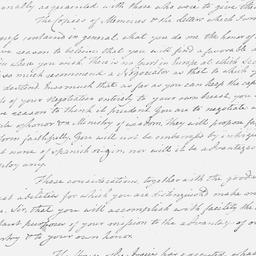 nally acquainted with those who were to give them
The Copies of Memoires & the letters which I wrote
contained in general what you do me the honor of
ve reason to believe that you will find a favorable
in where you wish. There is no part in Europe at which
so much recommend a Negociator as that to which y
destined. Inasmuch that as far as you can keep the cap
ts of your negotiation entirely to your own breast, you
ve reason to think it prudent. You are to negotiate
& Ministry of wisdom. They will propose fa
form faithfully. You will not be embarrass'd by intrigues
none of Spanish origin, nor will it be advantageous
ploy any.
These considerations together with the good
abilities for which you are distinguish'd make me
Sir, that you will accomplish with facility the
purposes of your mission to the advantage of
try & to your own honor.
has executed what